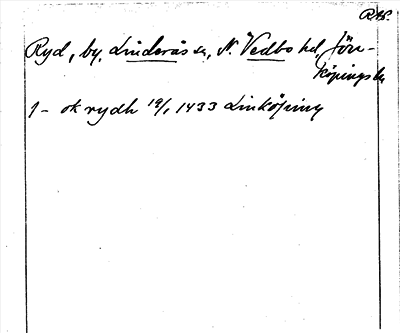 RAp.
Ryd, by, Linderås sn, N. Vedbo hd, Jön-
köpings län
J- ok rydh 19/1 1433 Linköping